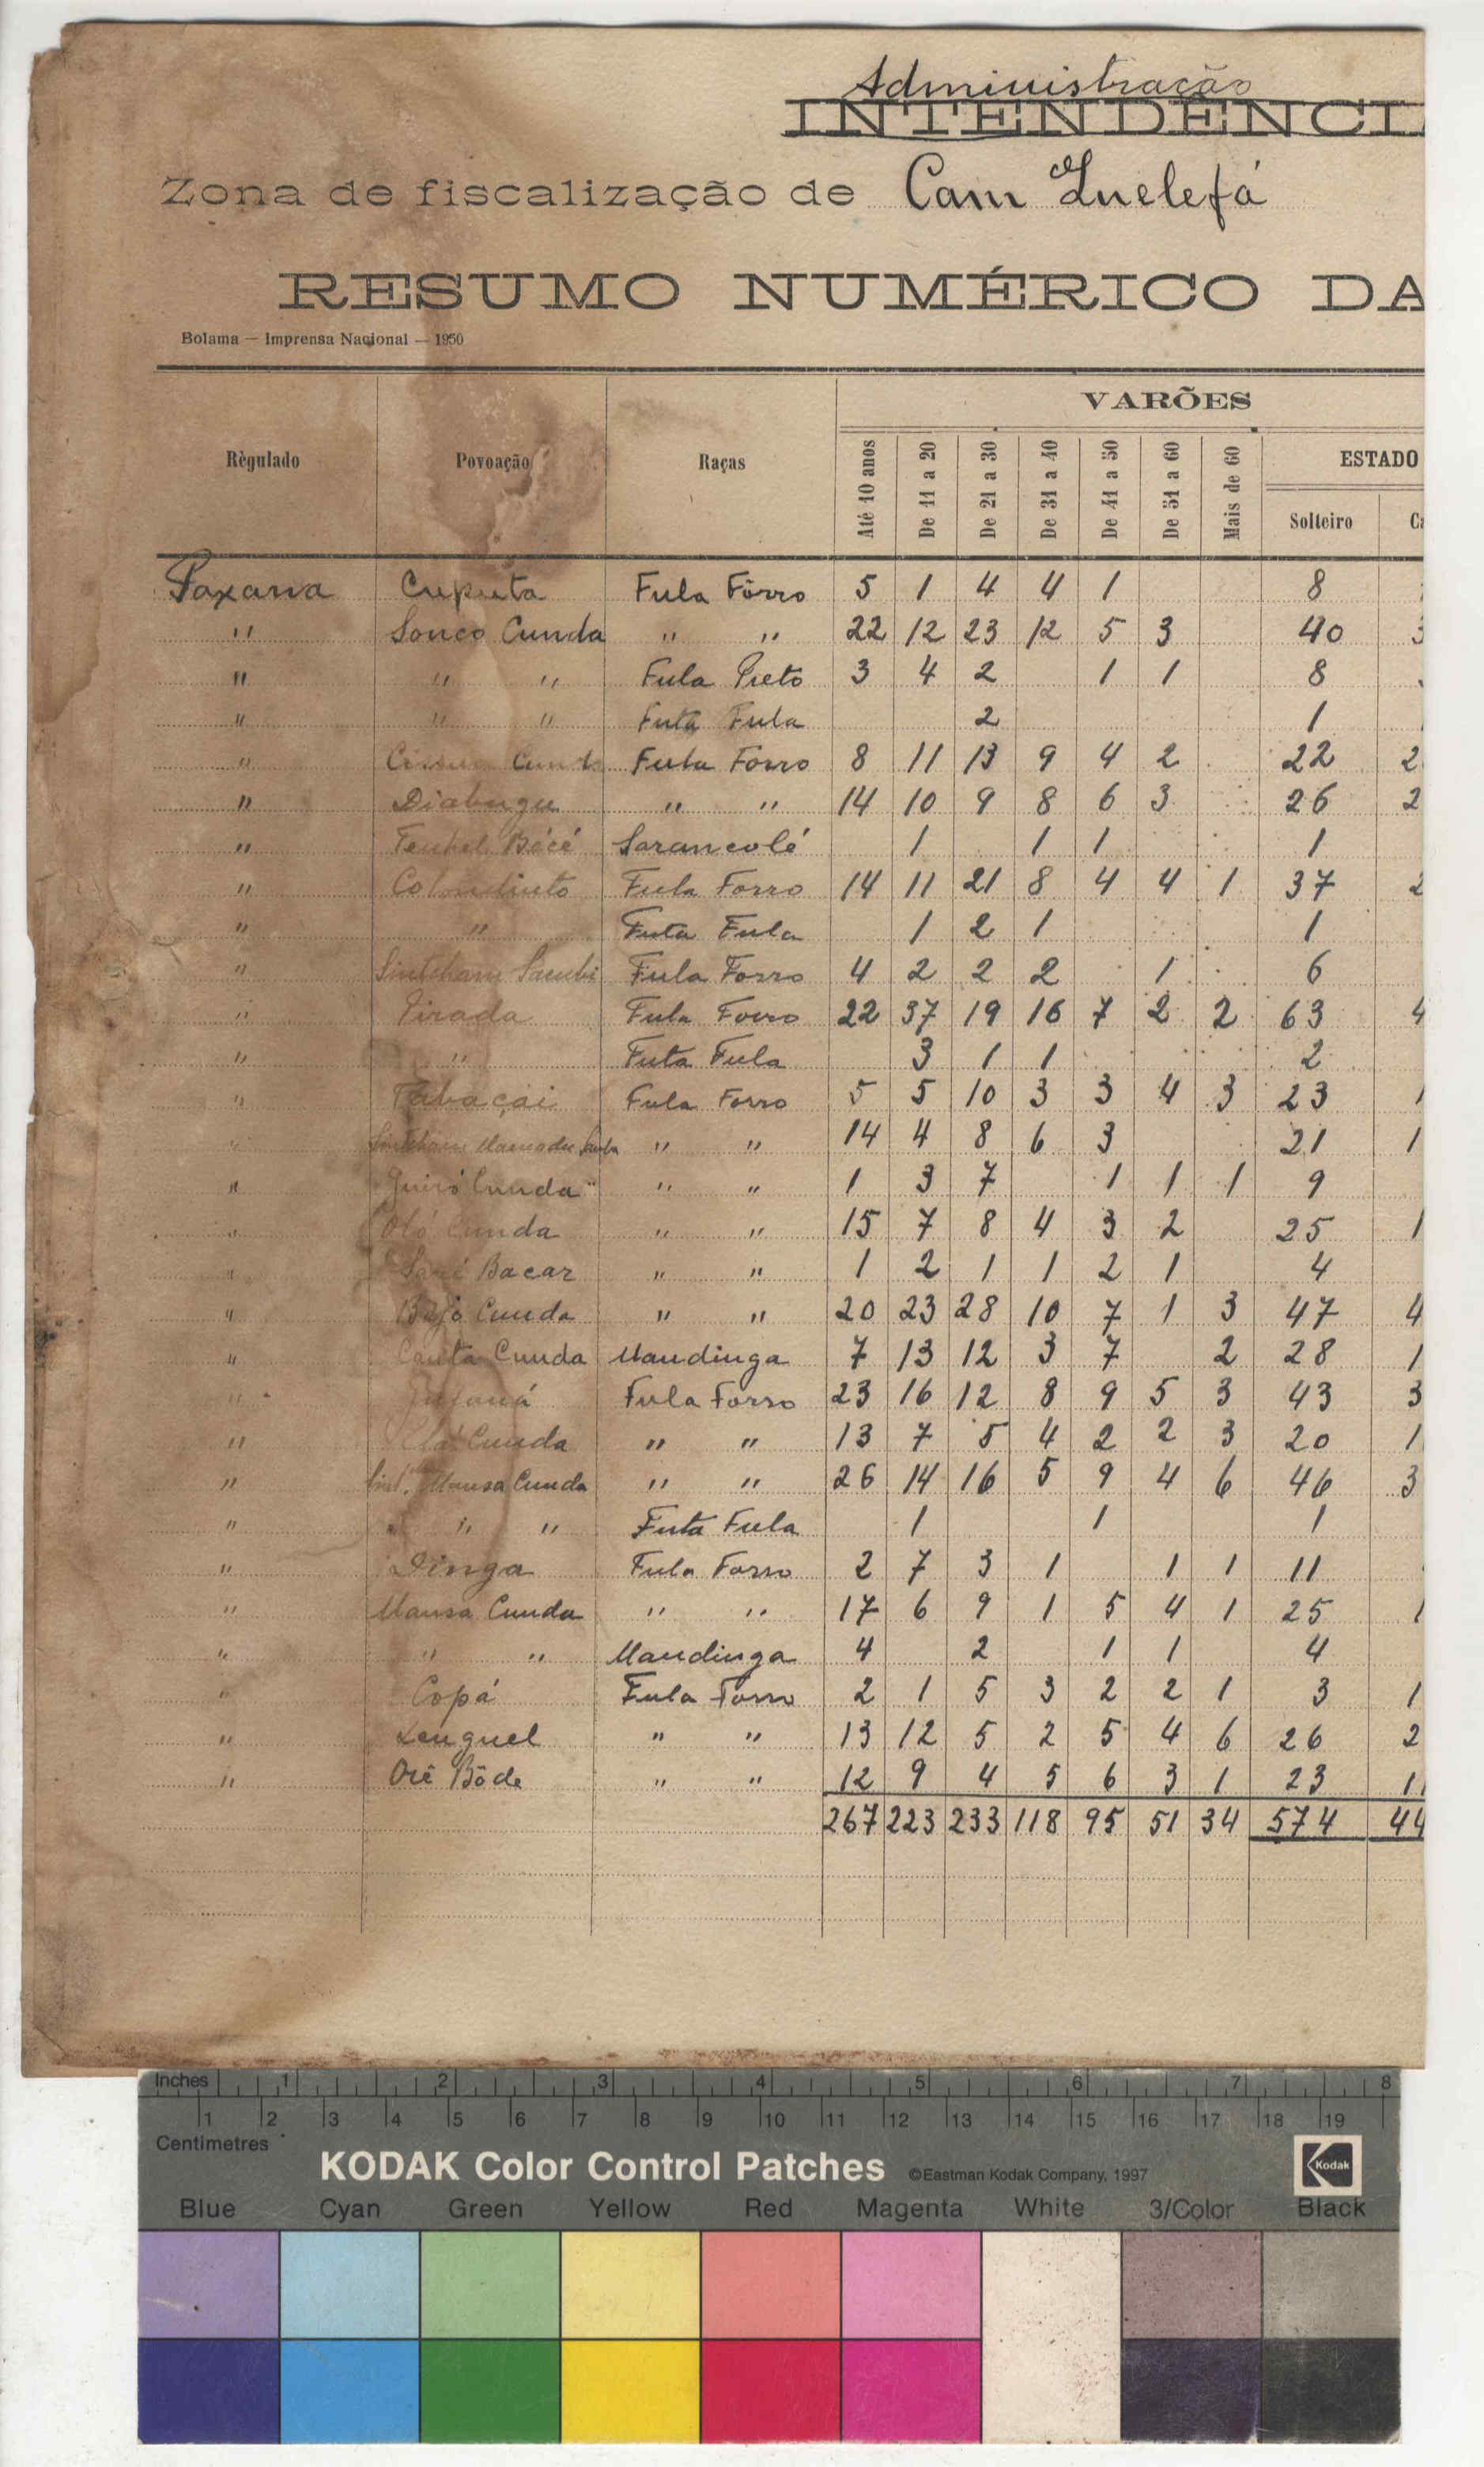 Administração
INTENDÊNCI
Zona de fiscalização de Cam Quelefá
RESUMO NUMÉRICO DA
Bolama — Imprensa Nacional — 1950
VARÕES
Règulado Povoação Raças Até 10 anos De 11 a 20 De 21 a 30 De 31 a 40 De 41 a 50 De 51 a 60 Mais de 60 ESTADO
Solteiro
Paxana Cuputa Fula Fôrro 5 1 4 4 1 8
" Sonco Cunda " " 22 12 23 12 5 3 40
" " " Fula Preto 3 4 2 1 1 8
" " " Futa Fula 2 1
" Fula Forro 8 11 13 9 4 2 22 2
" Diabugu " " 14 10 9 8 6 3 26 2
" Sarancolé 1 1 1 1
" Fula Forro 14 11 21 8 4 4 1 37 2
" " Futa Fula 1 2 1 1
" Fula Forro 4 2 2 2 1 6
" Pirada Fula Forro 22 37 19 16 7 2 2 63 4
" " Futa Fula 3 1 1 2
" Tabacai Fula Forro 5 5 10 3 3 4 3 23 1
" " " 14 4 8 6 3 21 1
" Cunda " " 1 3 7 1 1 1 9
" Cunda " " 15 7 8 4 3 2 25 1
" Bacar " " 1 2 1 1 2 1 4
" Bajó Cunda " " 20 23 28 10 7 1 3 47 4
" Canta Cunda Mandinga 7 13 12 3 7 2 28 1
" Fula Forro 23 16 12 8 9 5 3 43 3
" Cunda " " 13 7 5 4 2 2 3 20 1
" Mansa Cunda " " 26 14 16 5 9 4 6 46 3
" " " " Futa Fula 1 1 1
" Dinga Fula Forro 2 7 3 1 1 1 11
" Mansa Cunda " " 17 6 9 1 5 4 1 25 1
" " " Mandinga 4 2 1 1 4
" Copá Fula Forro 2 1 5 3 2 2 1 3 1
" Lenguel " " 13 12 5 2 5 4 6 26 2
" Orê Bôde " " 12 9 4 5 6 3 1 23 1
267 223 233 118 95 51 34 574 44
Inches 1 2 3 4 5 6 7 8
1 2 3 4 5 6 7 8 9 10 11 12 13 14 15 16 17 18 19
Centimetres
KODAK Color Control Patches ©Eastman Kodak Company, 1997 Kodak
Blue Cyan Green Yellow Red Magenta White 3/Color Black